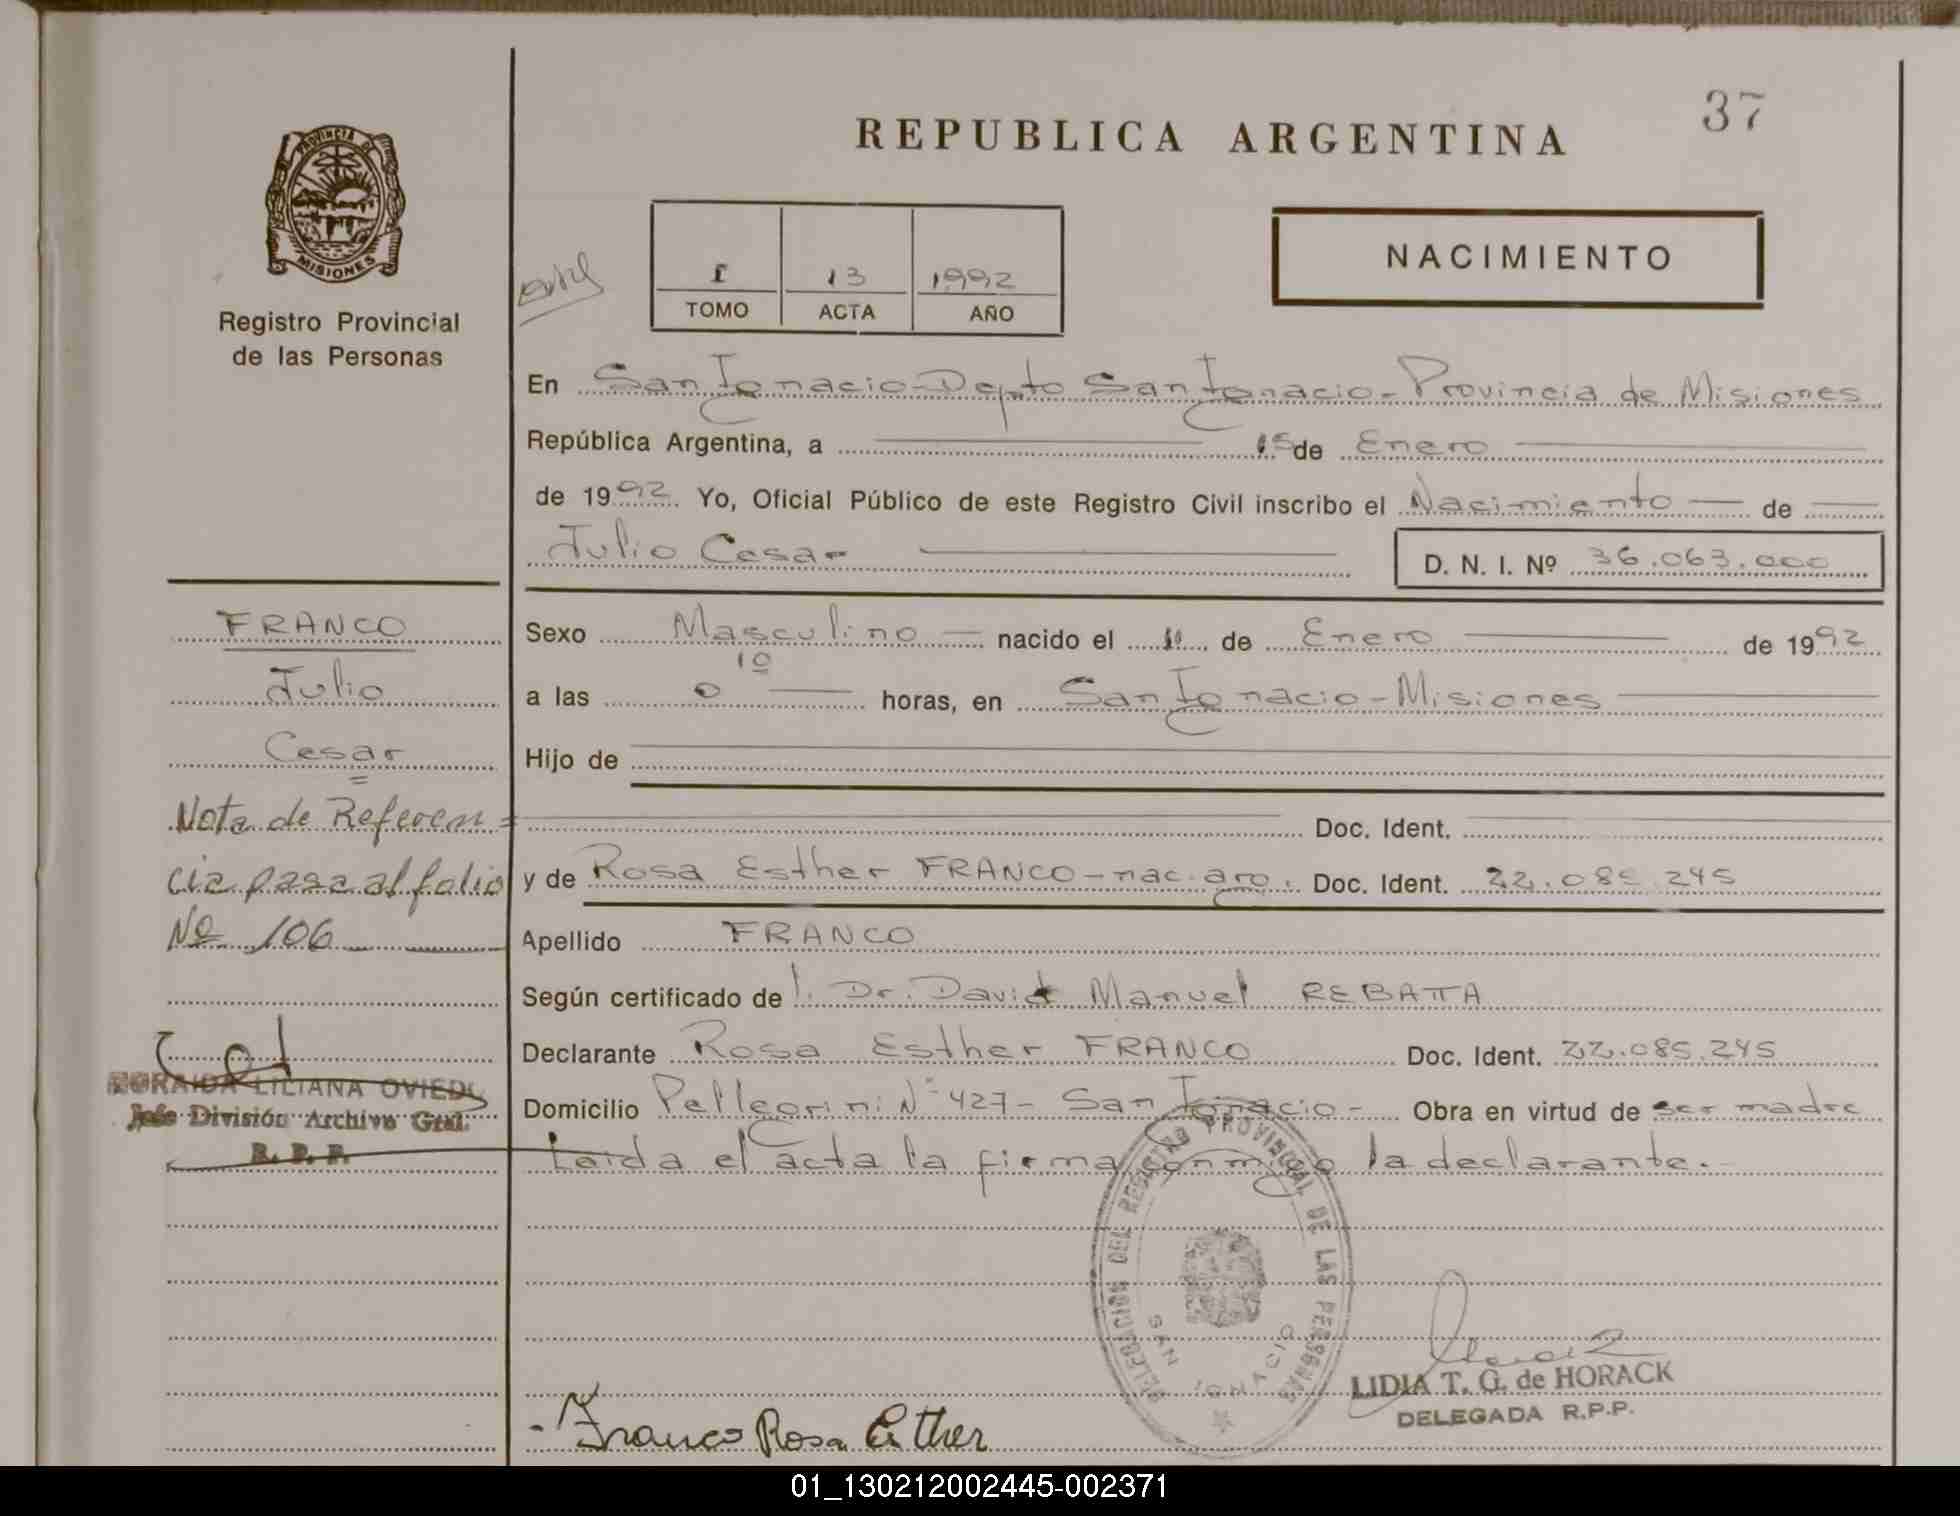 37
REPUBLICA ARGENTINA
PROVINCIA DE
MISIONES
Registro Provincial
de las Personas
I 13 1992
TOMO ACTA AÑO
NACIMIENTO
En San Ignacio - Depto San Ignacio - Provincia de Misiones
República Argentina, a 15 de Enero
de 1992. Yo, Oficial Público de este Registro Civil inscribo el Nacimiento de
Julio Cesar
D. N. I. Nº 36.063.000
Sexo Masculino nacido el 1º de Enero de 1992
1º
a las 0 horas, en San Ignacio - Misiones
Hijo de
Doc. Ident.
y de Rosa Esther FRANCO - nac. arg. Doc. Ident. 22.085.245
Apellido FRANCO
Según certificado del. Dr. David Manuel REBATTA
Declarante Rosa Esther FRANCO Doc. Ident. 22.085.245
Domicilio Pellegrini Nº 427 - San Ignacio - Obra en virtud de ser madre
Leida el acta la firma conmigo la declarante.
FRANCO
Julio
Cesar
Nota de Referen =
cia pasa al folio
Nº 106
ZORAIDA LILIANA OVIEDO
Jefe División Archivo Gral.
R. P. P.
DELEGACION DEL REGISTRO PROVINCIAL DE LAS PERSONAS
SAN IGNACIO
LIDIA T. G. de HORACK
DELEGADA R.P.P.
Franco Rosa Esther
01_130212002445-002371